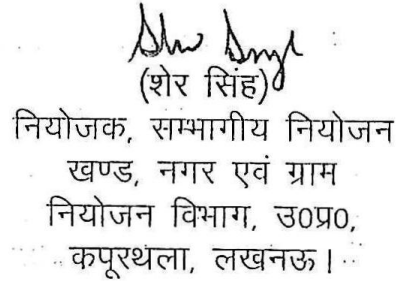 (शेर सिंह)
नियोजक, सम्भागीय नियोजन
खण्ड, नगर एवं ग्राम
नियोजन विभाग, उ०प्र०,
कपूरथला, लखनऊ।